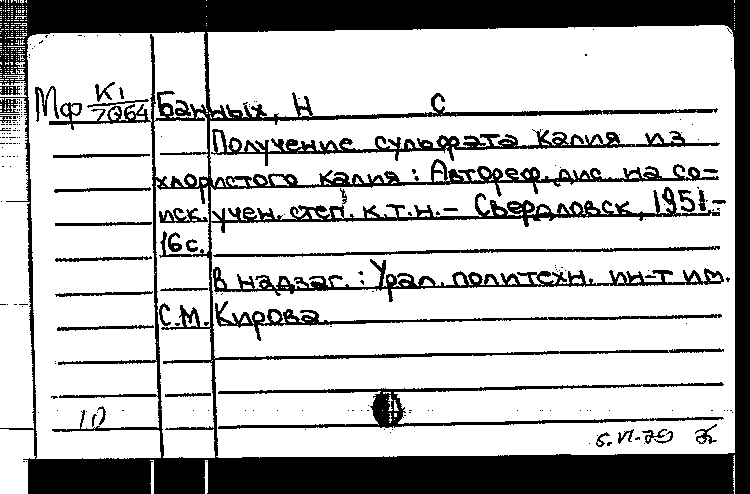 Мф К1/7064 Банных, Н С
Получение сульфата калия из
хлористого калия : Автореф. дис. на со-
иск. учен. степ. к.т.н. – Свердловск, 1951.–
16 с.
В надзаг. : Урал. политехн. ин-т им.
С.М. Кирова.
10